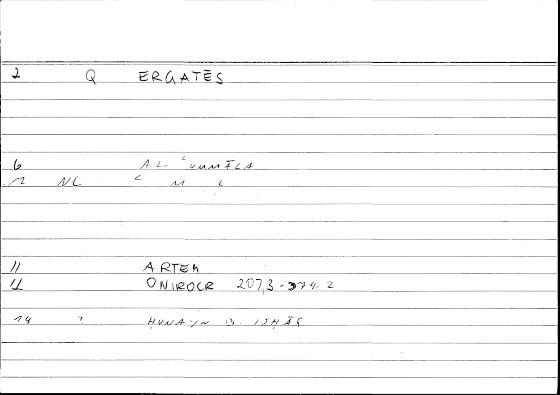 2 Q ERGATĒS
6 AL-ʿUMMĀLA
12 NC ʿ M L
11 ARTEM
12 ONIROCR 207,3 - 374.2
14 ? ḤUNAYN B. ISḤĀQ